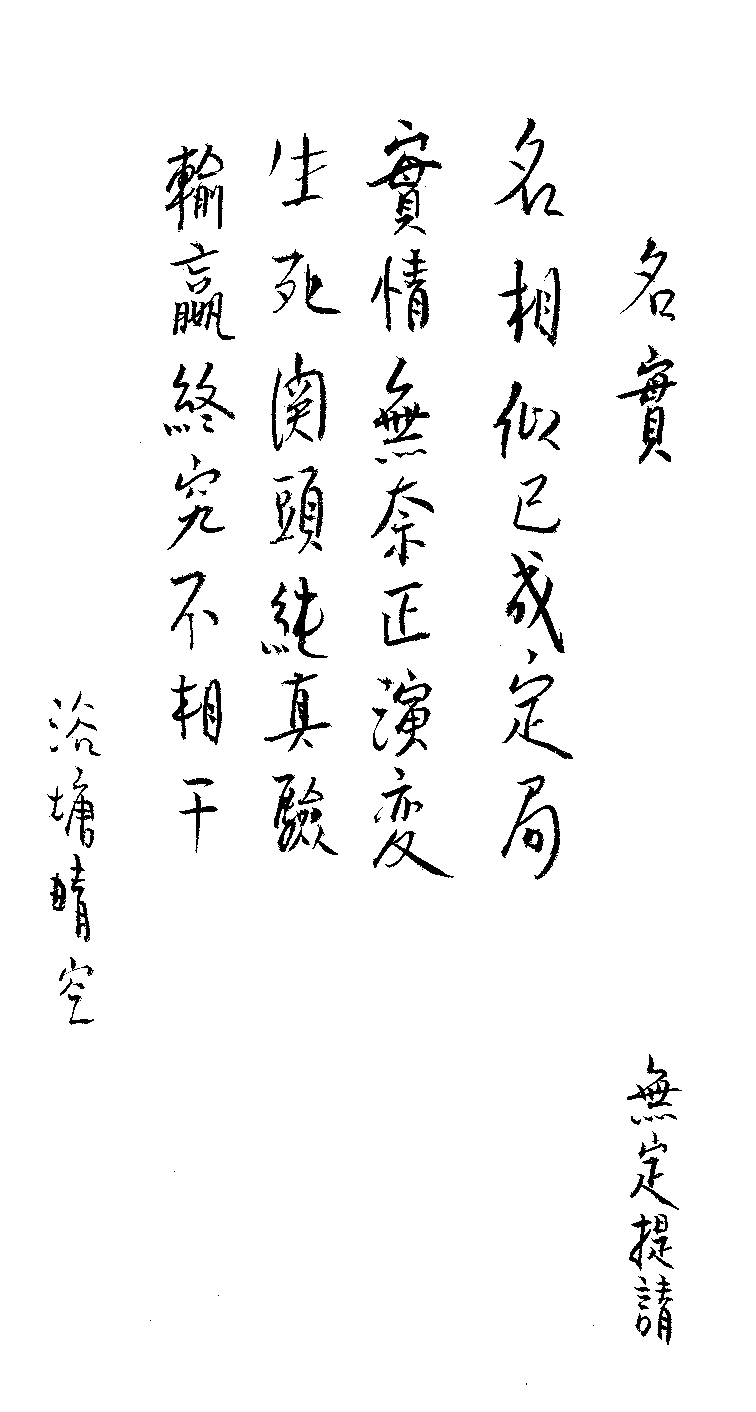 名實
無定提請
名相似已成定局
實情無奈正演变
生死関頭純真驗
輸贏終究不相干
浴塘晴空